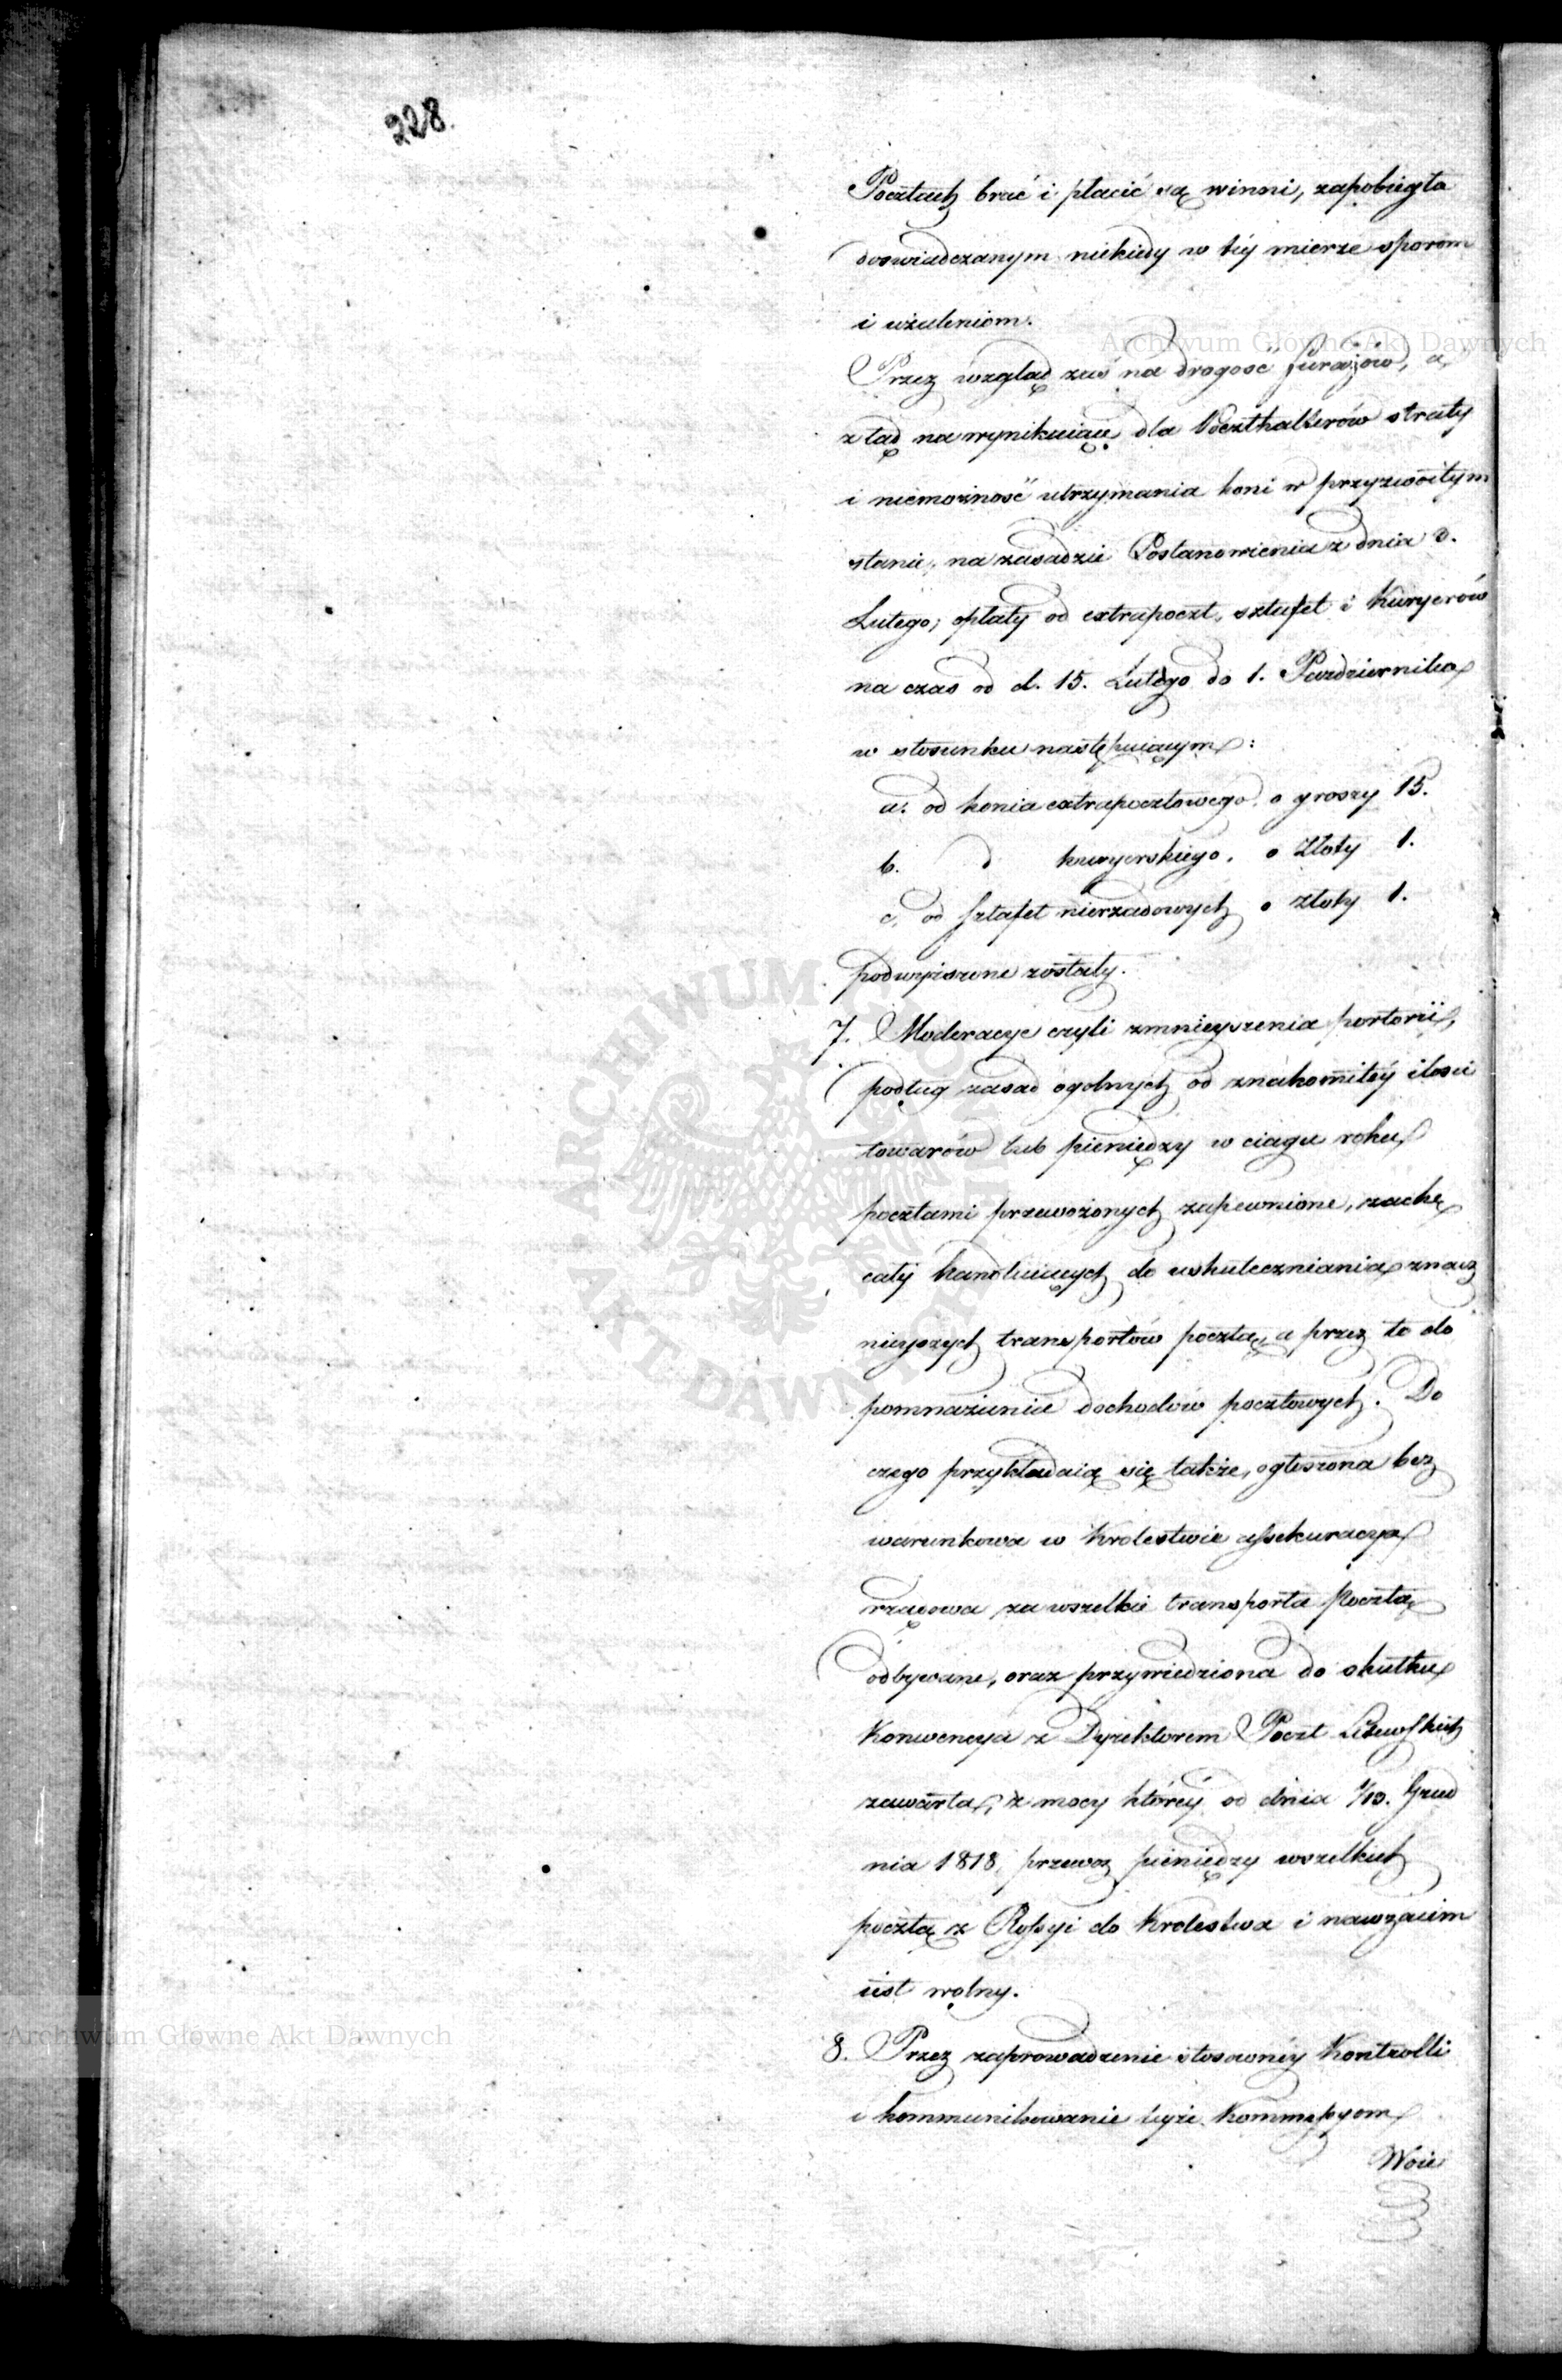 228.
Pocztach brać i płacić są winni, zapobiegła
doswiadczanym niekiedy w téy mierze sporom
i użaleniom.
Przez wzgląd zaś na drogość furażów, a
ztąd na wynikaiące dla Poczthalterów straty
i niemożność utrzymania koni w przyzwoitym
stanie, na zasadzie Postanowienia z dnia 3.
Lutego, opłaty od extrapoczt, sztafet i Kuryerów
na czas od d. 15. Lutego do 1. Pazdziernika
w stosunku następuiącym:
a. od konia extrapocztowego o groszy 15.
b. d kuryerskiego. o Złoty 1.
c. od sztafet nierządowych o złoty 1.
podwyiszone zostały.
7. Moderacye czyli zmnieyszenia portorii,
podług zasad ogolnych od znakomitéy ilosci
towarów lub pieniędzy w ciągu roku
pocztami przewożonych zapewnione, zachę
cały handluiących do uskuteczniania znacz
nieyszych transportów pocztą, a przez to do
pomnażenia dochodów pocztowych. Do
czego przykładaią się także, ogłoszona bez
warunkowa w Krolestwie assekuracya
rządowa za wszelkie transporta Pocztą
odbywane, oraz przywiedziona do skutku
Konwencya z Dyrektorem Poczt Litewskich
zawarta, z mocy któréy od dnia 1/13. Grud
nia 1818, przewoz pieniędzy wszelkich
pocztą z Rossyi do Krolestwa i nawzaiem
iest wolny.
8. Przez zaprowadzenie stosownéy Kontrolli
i kommunikowanie teyże Kommissyom
Woie
Archiwum Główne Akt Dawnych
Archiwum Główne Akt Dawnych